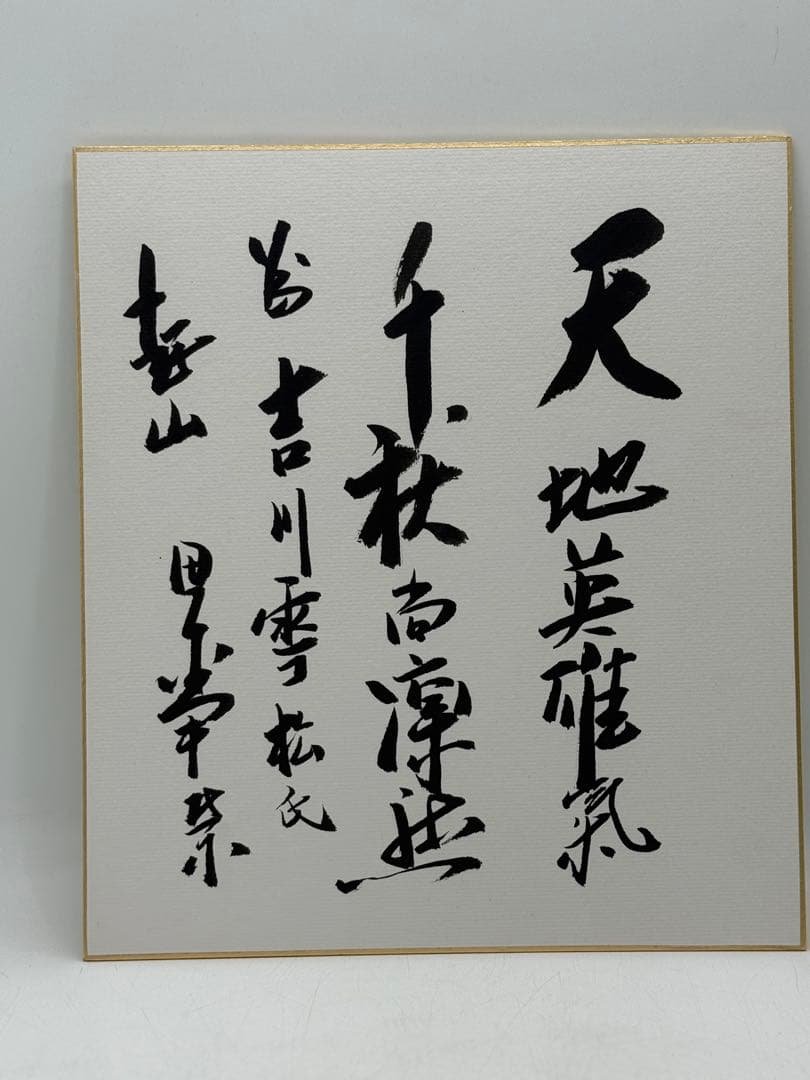 天地英雄氣
千秋尚凛然
為吉川雲松氏
寿山 田中常榮